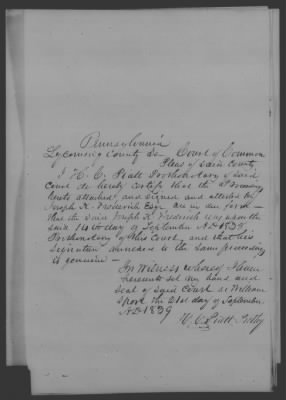 Pennsylvania
Lycoming County Ss Court of Common
Pleas of said County
I H. C. Piatt Prothonotary of said
Court do hereby certify that the
hereto attached and signed and attested by
Joseph K. Frederick Esqr are in due form
that the said Joseph K. Frederick was upon the
said 14th day of September AD 1839
Prothonotary of this Court, and that his
signature annexed to the same proceeding
is genuine —
In Witness whereof I have
hereunto set my hand and
seal of said Court at Williams
port the 21st day of September
AD 1839
H. C. Piatt Prothy